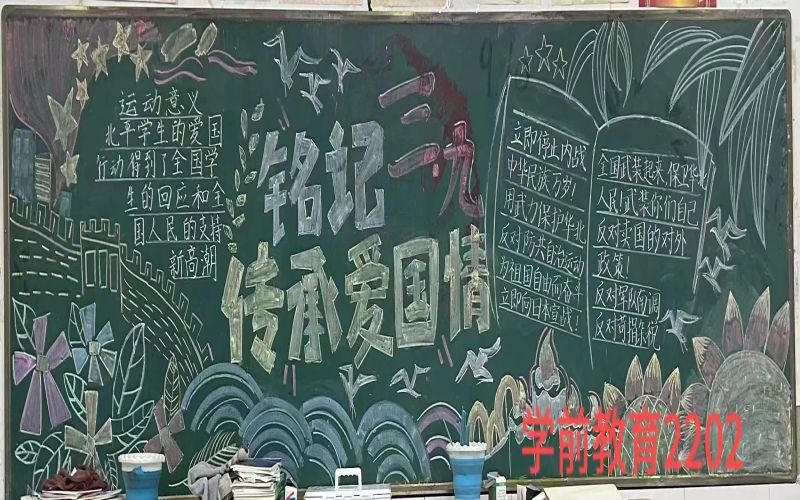 运动意义
北平学生的爱国
行动得到了全国学
生的回应和全
国人民的支持
新高潮
铭记
二九
传承爱国情
立即停止内战
中华民族万岁!
用武力保护华北
反对防共自治运动
为祖国自由而奋斗
立即向日本宣战!
全国武装起来保护华北
人民!武装你们自己
反对卖国的对外
政策!
反对军队的调
反对苛捐杂税
学前教育2202